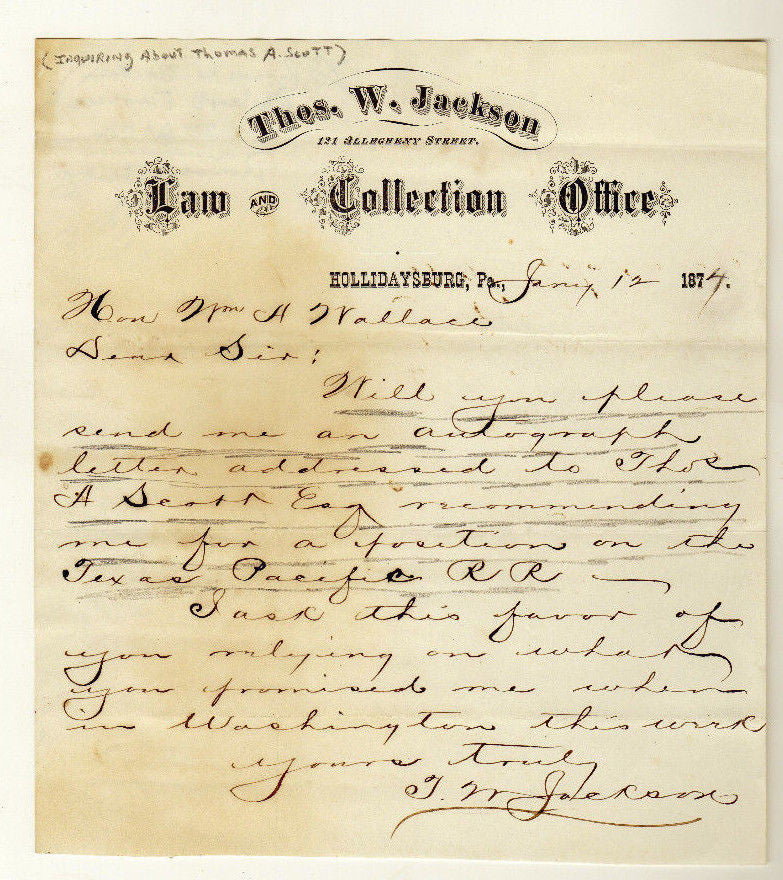 (INQUIRING ABOUT THOMAS A. SCOTT)
Thos. W. Jackson
121 ALLEGHENY STREET.
Law AND Collection Office
HOLLIDAYSBURG, Pa., Jany 12 1874.
Hon Wm A Wallace
Dear Sir:
Will you please
send me an autograph
letter addressed to Thos
A Scott Esq recommending
me for a position on the
Texas Pacific RR —
I ask this favor of
you relying on what
you promised me when
in Washington this week
yours truly
T. W. Jackson